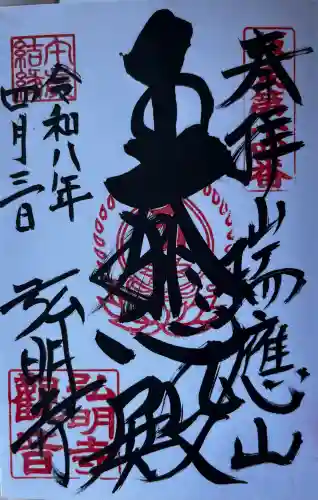 奉拝
坂東第十四番
瑞應山
大悲殿
令和八年
四月三日
弘明寺
弘明寺
觀音